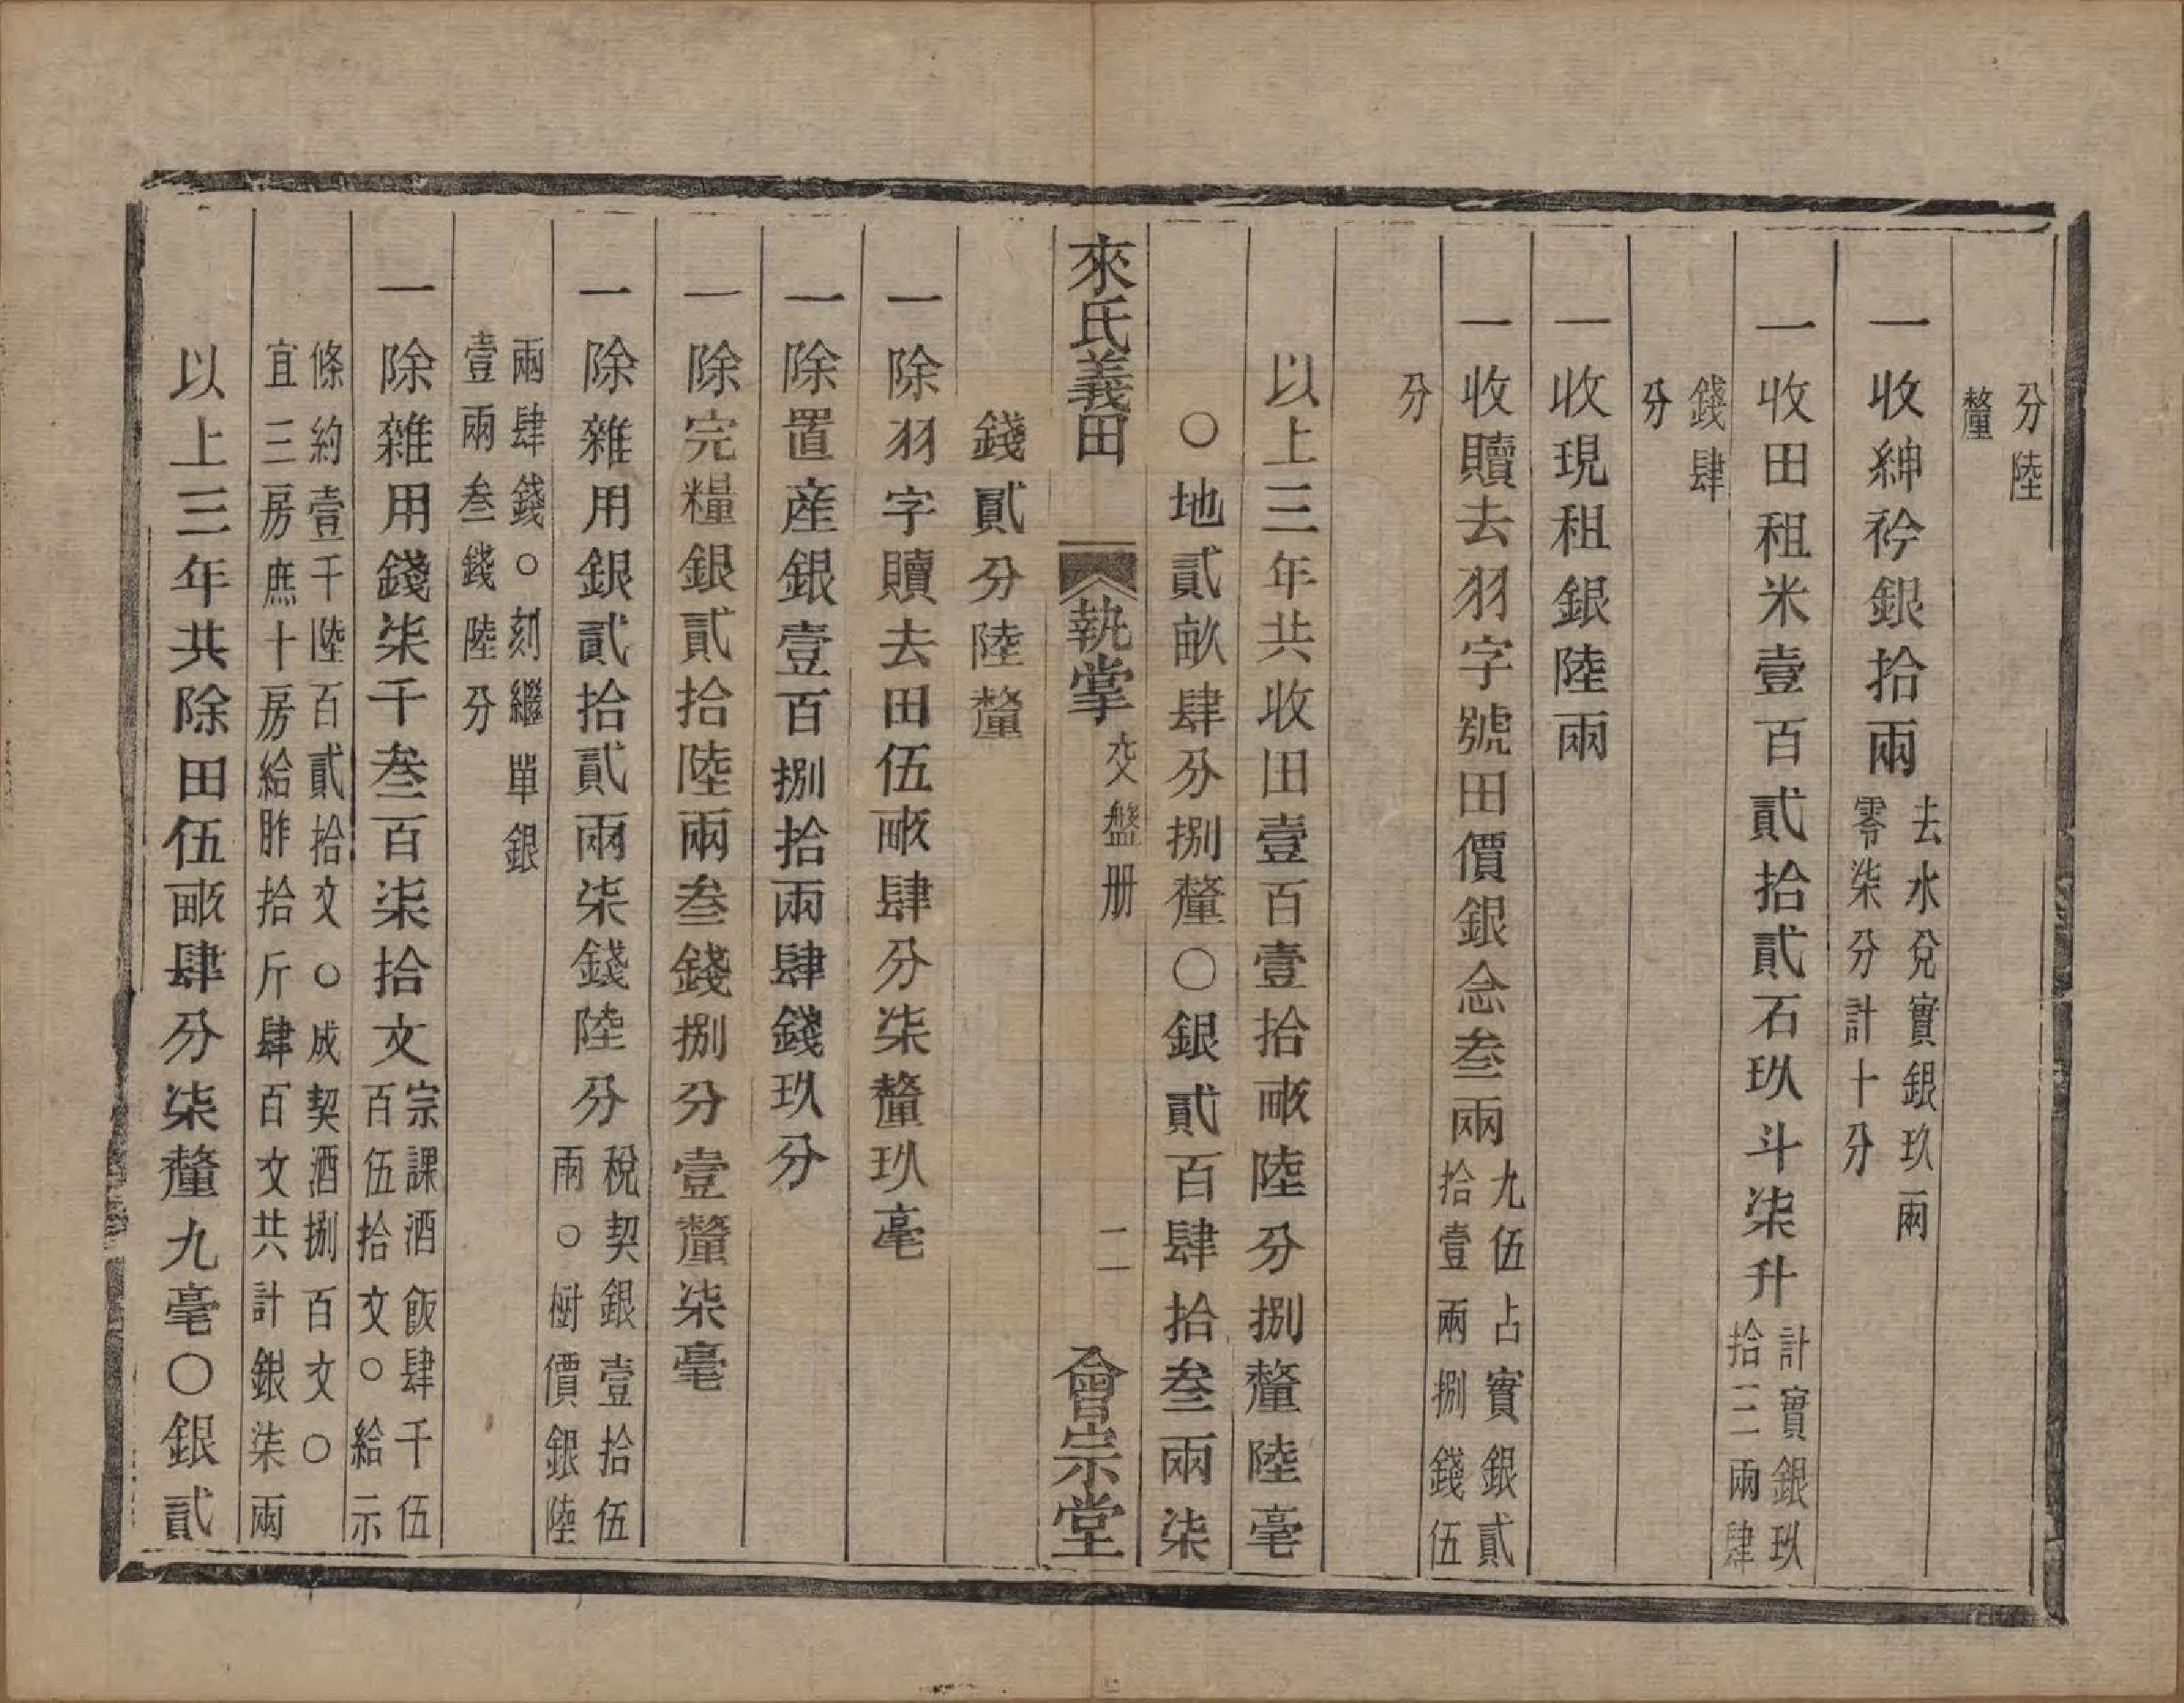 分陸
釐
一收紳衿銀拾兩去水兌實銀玖兩
零柒分計十分
一收田租米壹百貳拾貳石玖斗柒升計實銀玖
拾三兩肆
錢肆
分
一收現租銀陸兩
一收贖去羽字號田價銀念叁兩九伍占實銀貳
拾壹兩捌錢伍
分
以上三年共收田壹百壹拾畝陸分捌釐陸毫
○地貳畝肆分捌釐○銀貳百肆拾叁兩柒
來氏義田 執掌 交盤册 二 會宗堂
錢貳分陸釐
一除羽字贖去田伍畝肆分柒釐玖毫
一除置產銀壹百捌拾兩肆錢玖分
一除完糧銀貳拾陸兩叁錢捌分壹釐柒毫
一除雜用銀貳拾貳兩柒錢陸分稅契銀壹拾伍
兩○樹價銀陸
兩肆錢○刻繼單銀
壹兩叁錢陸分
一除雜用錢柒千叁百柒拾文宗課酒飯肆千伍
百伍拾文○給示
條約壹千陸百貳拾文○成契酒捌百文○
宜三房庶十房給胙拾斤肆百文共計銀柒兩
以上三年共除田伍畝肆分柒釐九毫○銀貳